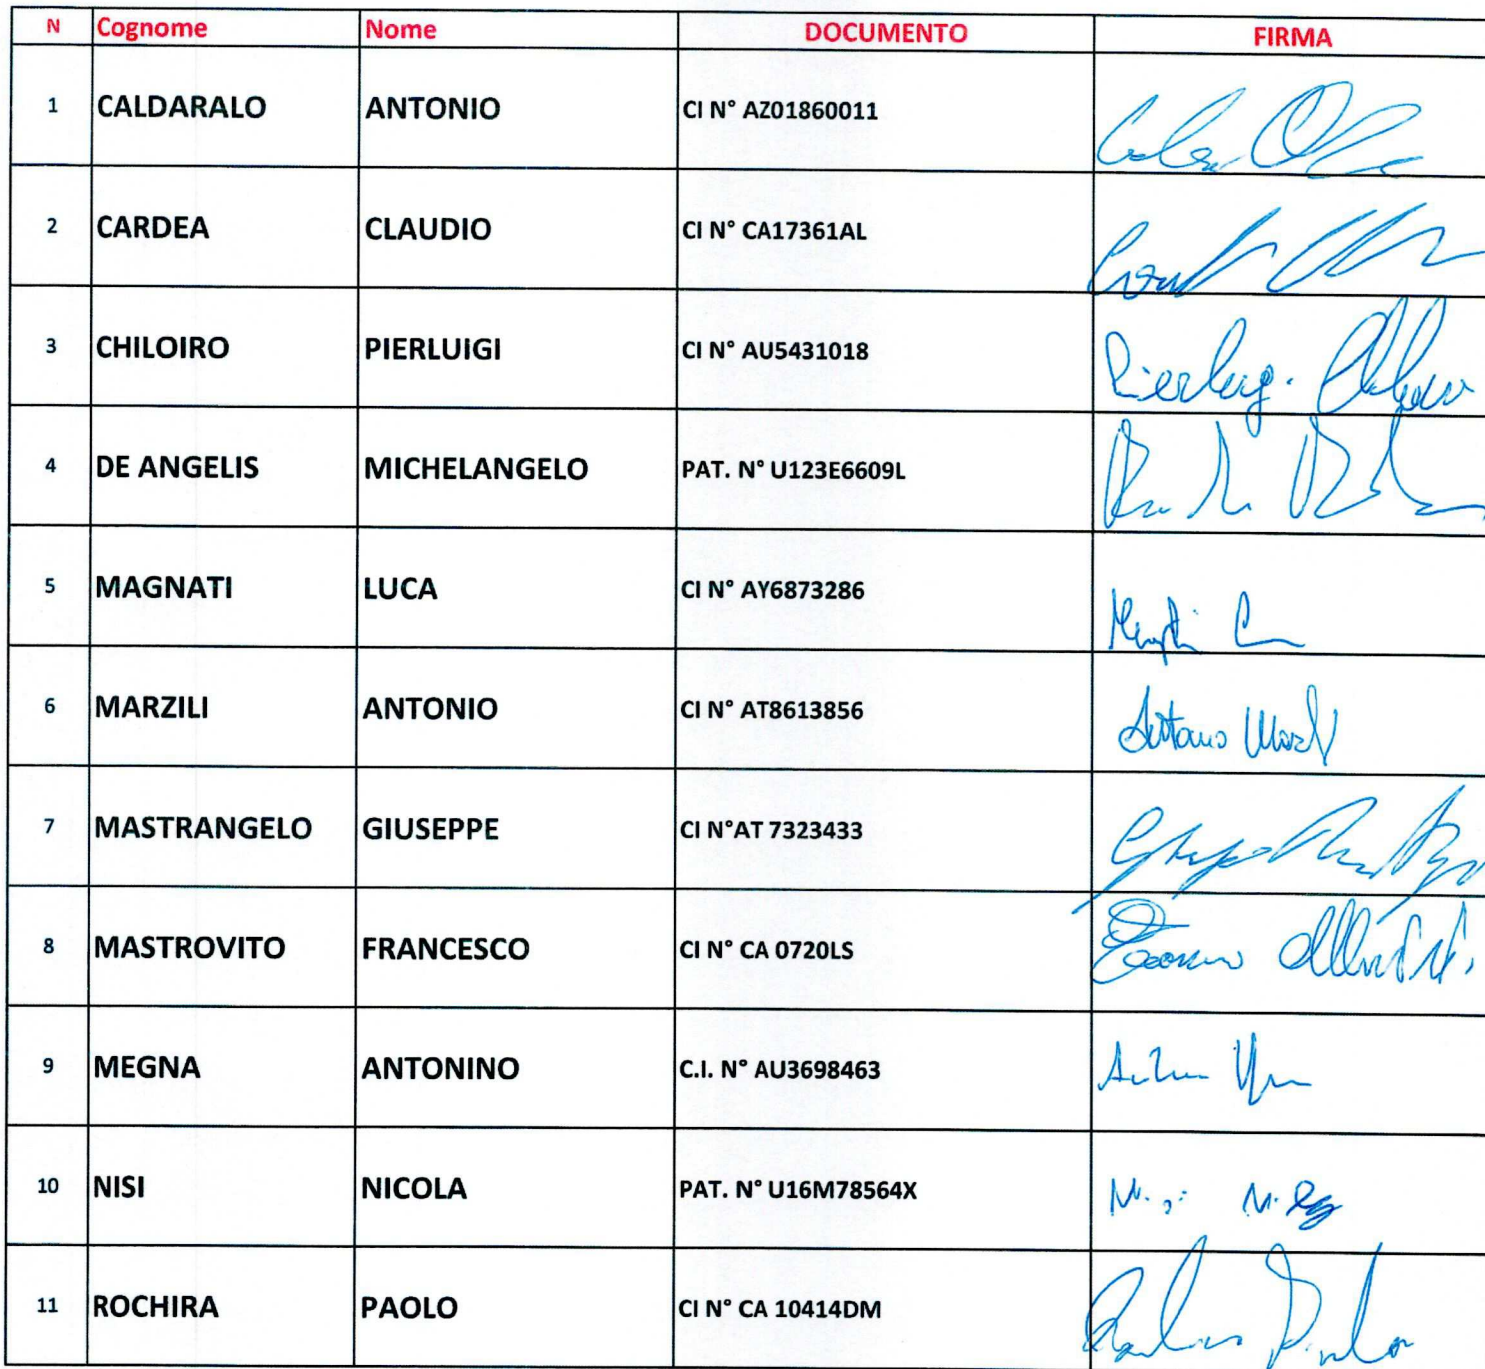 N Cognome Nome DOCUMENTO FIRMA
1 CALDARALO ANTONIO CI N° AZ01860011
2 CARDEA CLAUDIO CI N° CA17361AL
3 CHILOIRO PIERLUIGI CI N° AU5431018 Pierluigi
4 DE ANGELIS MICHELANGELO PAT. N° U123E6609L
5 MAGNATI LUCA CI N° AY6873286
6 MARZILI ANTONIO CI N° AT8613856
7 MASTRANGELO GIUSEPPE CI N°AT 7323433
8 MASTROVITO FRANCESCO CI N° CA 0720LS
9 MEGNA ANTONINO C.I. N° AU3698463
10 NISI NICOLA PAT. N° U16M78564X
11 ROCHIRA PAOLO CI N° CA 10414DM